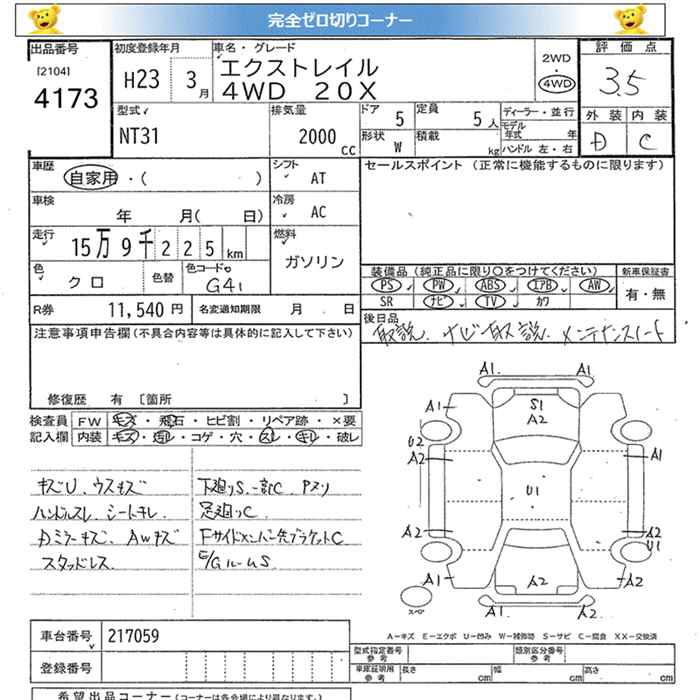 完全ゼロ切りコーナー
出品番号
[2104]
4173
初度登録年月
H23 3月
車名・グレード
エクストレイル
4WD 20X
2WD
4WD
評価点
3.5
外装 内装
D C
型式
NT31
排気量
2000 cc
ドア 5
定員 5人
形状 W
積載 kg
ディーラー・並行
モデル年式 年
ハンドル 左・右
車歴
自家用・( )
シフト AT
車検
年 月( 日)
冷房 AC
走行
15万9千225km
燃料
ガソリン
色
クロ
色替
色コードNo
G41
R券 11,540円
名変通知期限 月 日
セールスポイント (正常に機能するものに限ります)
装備品(純正品に限り○をつけてください)
PS PW ABS エアB AW
SR ナビ TV カワ
新車保証書
有・無
後日品
取説. ナビ取説. メンテナンスノート
注意事項申告欄(不具合内容等は具体的に記入して下さい)
修復歴 有 [箇所 ]
検査員記入欄
FW キズ・飛石・ヒビ割・リペア跡・×要
内装 キズ・汚レ・コゲ・穴・スレ・キレ・破レ
キズU、ウスキズ
ハンドルスレ、シートキレ
Dミラーキズ、AWキズ
スタッドレス
下廻りS.一部C Pヌリ
足廻りC
Fサイドメンバー先ブラケットC
E/GルームS
A1 A1.
A1 A1
S1
A2
U2
A2 A1
U1
A2 A2
U1
A2
A1 A2
A1 A2
スペア
A-キズ E-エクボ U-凹み W-補修跡 S-サビ C-腐食 XX-交換済
車台番号 217059
登録番号
型式指定番号
参考
類別区分番号
参考
車庫証明用
参考
長さ cm 幅 cm 高さ cm
希望出品コーナー (コーナーは各会場により異なります。)